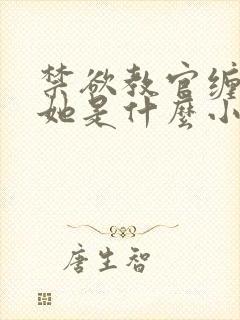 禁欲教官缠
她是什麼小
唐生智